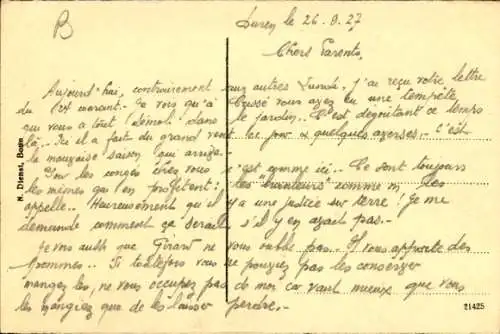 B
Duren le 26-9-27
Chers Parents,
Aujourd'hui, contrairement aux autres Lundi, j'ai reçu votre lettre
du 24 courant. Je vois qu'à Cussé vous avez eu une tempête
qui vous a tout "démoli" dans le jardin. C'est dégoûtant ce temps
là.. Ici il a fait du grand vent ce jour et quelques averses.. C'est
la mauvaise saison qui arrive.
Pour les congés chez vous c'est comme ici.. Ce sont toujours
les mêmes qui en profitent: les comme on les
appelle.. Heureusement qu'il y a une justice sur terre! Je me
demande comment ça serait s'il y en avait pas.-
Je vois aussi que Girard ne vous oublie pas.- Il vous apporte des
pommes.. Si toutefois vous ne pouviez pas les conserver
mangez les, ne vous occupez pas de moi car vaut mieux que vous
les mangiez que de les laisser perdre.-
N. Dienst, Bonn
21425